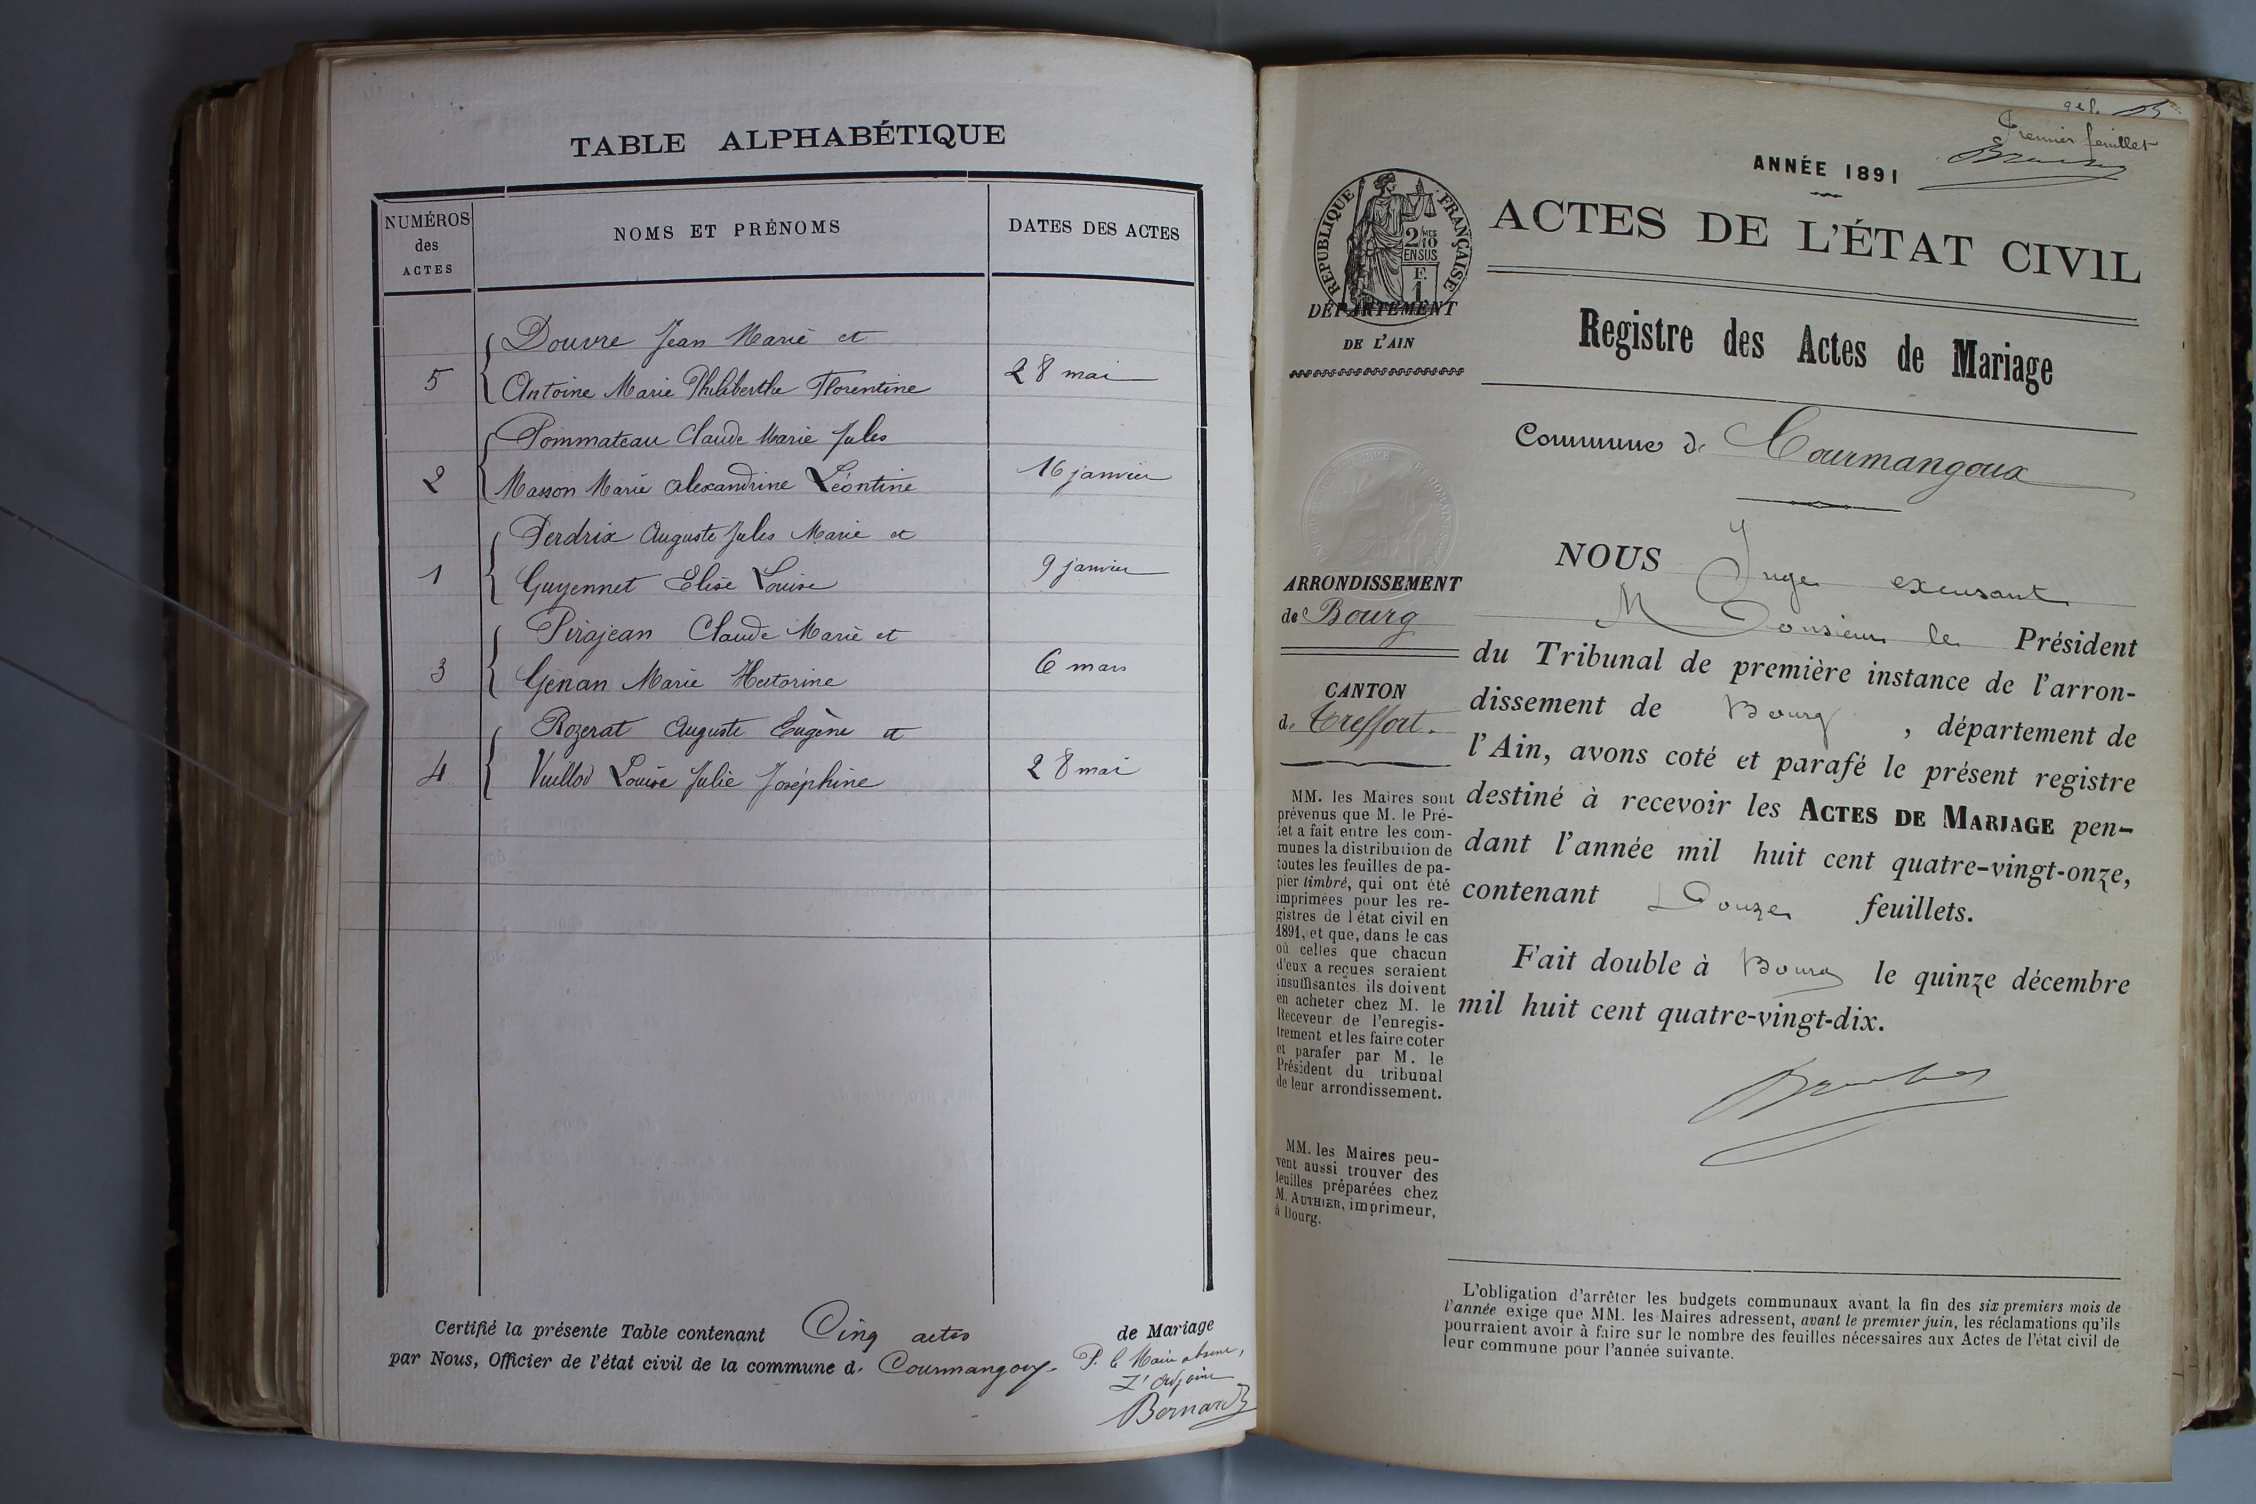 TABLE ALPHABÉTIQUE
NUMÉROS des ACTES
NOMS ET PRÉNOMS
DATES DES ACTES
Douvre Jean Marie et
5 Antoine Marie Philiberthe Florentine 28 mai
Pommateau Claude Marie Jules
2 Masson Marie Alexandrine Léontine 16 janvier
Perdrix Auguste Jules Marie et
1 Guyennet Elise Louise 9 janvier
Pirajean Claude Marie et
3 Génan Marie 6 mars
Rozerat Auguste Eugène et
4 Vuillod Louise Julie Joséphine 28 mai
Certifié la présente Table contenant Cinq actes de Mariage
par Nous, Officier de l'état civil de la commune d. Courmangoux
P. le Maire absent,
L'adjoint
Bernard
Premier feuillet
ANNÉE 1891
ACTES DE L'ÉTAT CIVIL
RÉPUBLIQUE FRANÇAISE
2/10 MES
EN SUS
F.
1
DÉPARTEMENT
DE L'AIN
Registre des Actes de Mariage
Commune de Courmangoux
ARRONDISSEMENT
de Bourg
CANTON
de Treffort.
MM. les Maires sont
prévenus que M. le Pré-
fet a fait entre les com-
munes la distribution de
toutes les feuilles de pa-
pier timbré, qui ont été
imprimées pour les re-
gistres de l'état civil en
1891, et que, dans le cas
où celles que chacun
d'eux a reçues seraient
insuffisantes ils doivent
en acheter chez M. le
Receveur de l'enregis-
trement et les faire coter
et parafer par M. le
Président du tribunal
de leur arrondissement.
MM. les Maires peu-
vent aussi trouver des
feuilles préparées chez
M. AUTHIER, imprimeur,
à Bourg.
NOUS Juge excusant
Monsieur le Président
du Tribunal de première instance de l'arron-
dissement de Bourg, département de
l'Ain, avons coté et parafé le présent registre
destiné à recevoir les ACTES DE MARIAGE pen-
dant l'année mil huit cent quatre-vingt-onze,
contenant Douze feuillets.
Fait double à Bourg le quinze décembre
mil huit cent quatre-vingt-dix.
L'obligation d'arrêter les budgets communaux avant la fin des six premiers mois de
l'année exige que MM. les Maires adressent, avant le premier juin, les réclamations qu'ils
pourraient avoir à faire sur le nombre des feuilles nécessaires aux Actes de l'état civil de
leur commune pour l'année suivante.